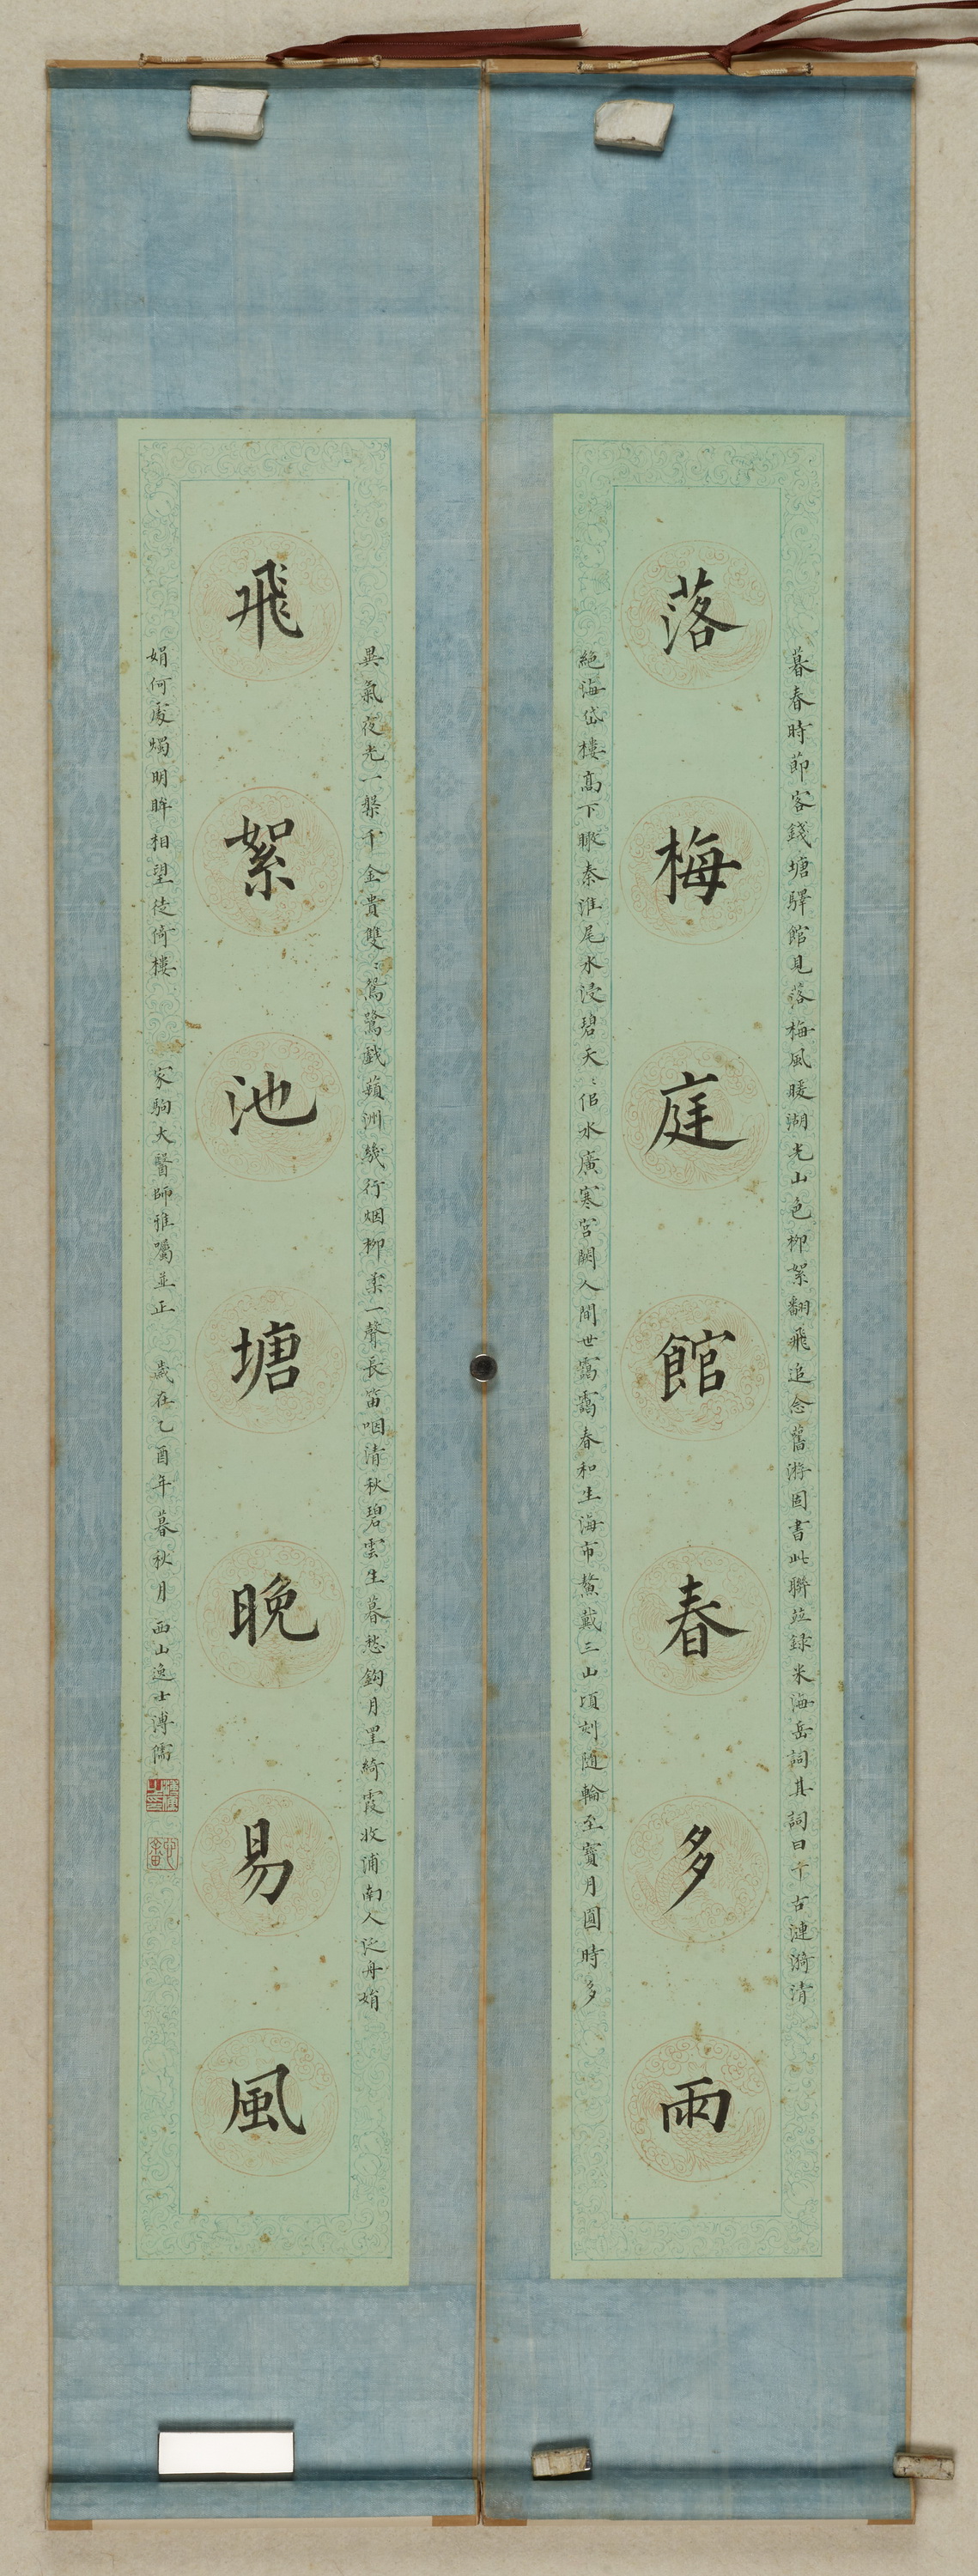 落梅庭館春多雨
暮春時節客錢塘驛館見落梅風暖湖光山色柳絮翻飛追念舊游因書此聯並錄米海岳詞其詞曰千古漣漪清
絕海岱樓高下瞰秦淮尾水浸碧天天佀水廣寒宮闕人間世靄靄春和生海市鰲戴三山頃刻隨輪至寶月圓時多
飛絮池塘晚易風
異氣夜光一棵千金貴雙雙鴛鷺戲蘋洲幾行烟柳柔一聲長笛咽清秋碧雲生暮愁鈎月罣綺霞收浦南人泛舟娟
娟何處燭明眸相望徒倚樓
家駒大醫師雅屬並正
歲在乙酉年暮秋月
西山逸士溥儒